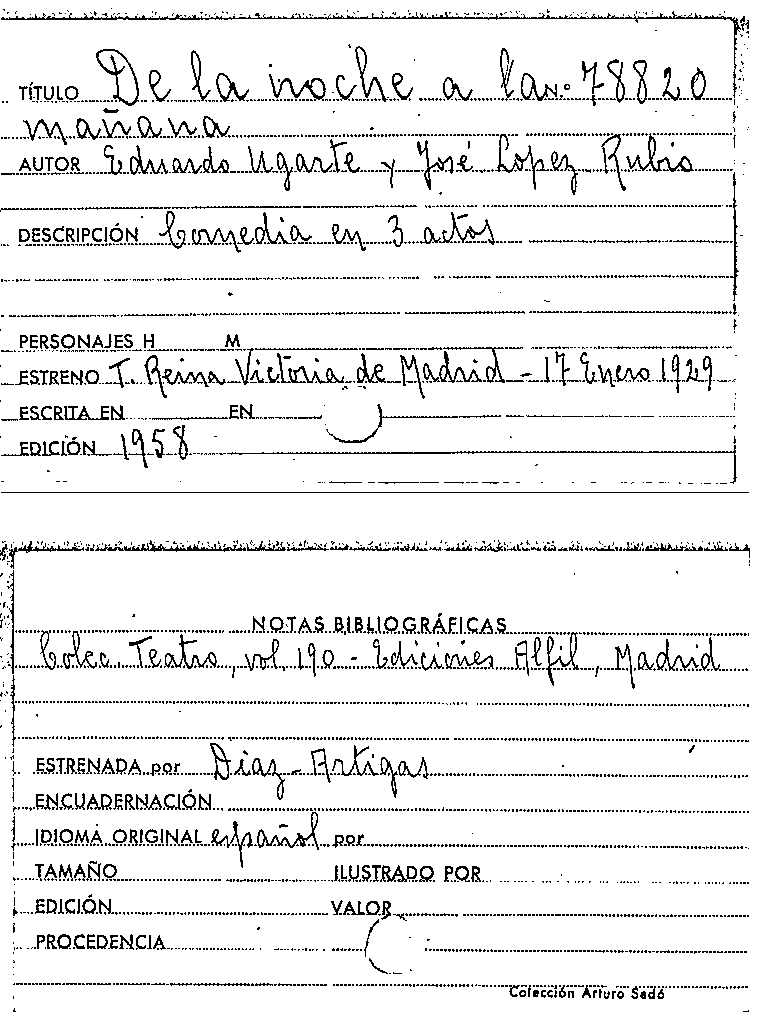 TÍTULO De la noche a la N.º 78820
mañana
AUTOR Eduardo Ugarte y José López Rubio
DESCRIPCIÓN Comedia en 3 actos
PERSONAJES H M
ESTRENO T. Reina Victoria de Madrid - 17 Enero 1929
ESCRITA EN EN
EDICIÓN 1958
NOTAS BIBLIOGRÁFICAS
Colec. Teatro, vol. 190 - Ediciones Alfil, Madrid
ESTRENADA por Diaz-Artigas
ENCUADERNACIÓN
IDIOMA ORIGINAL español por
TAMAÑO ILUSTRADO POR
EDICIÓN VALOR
PROCEDENCIA
Colección Arturo Sedó